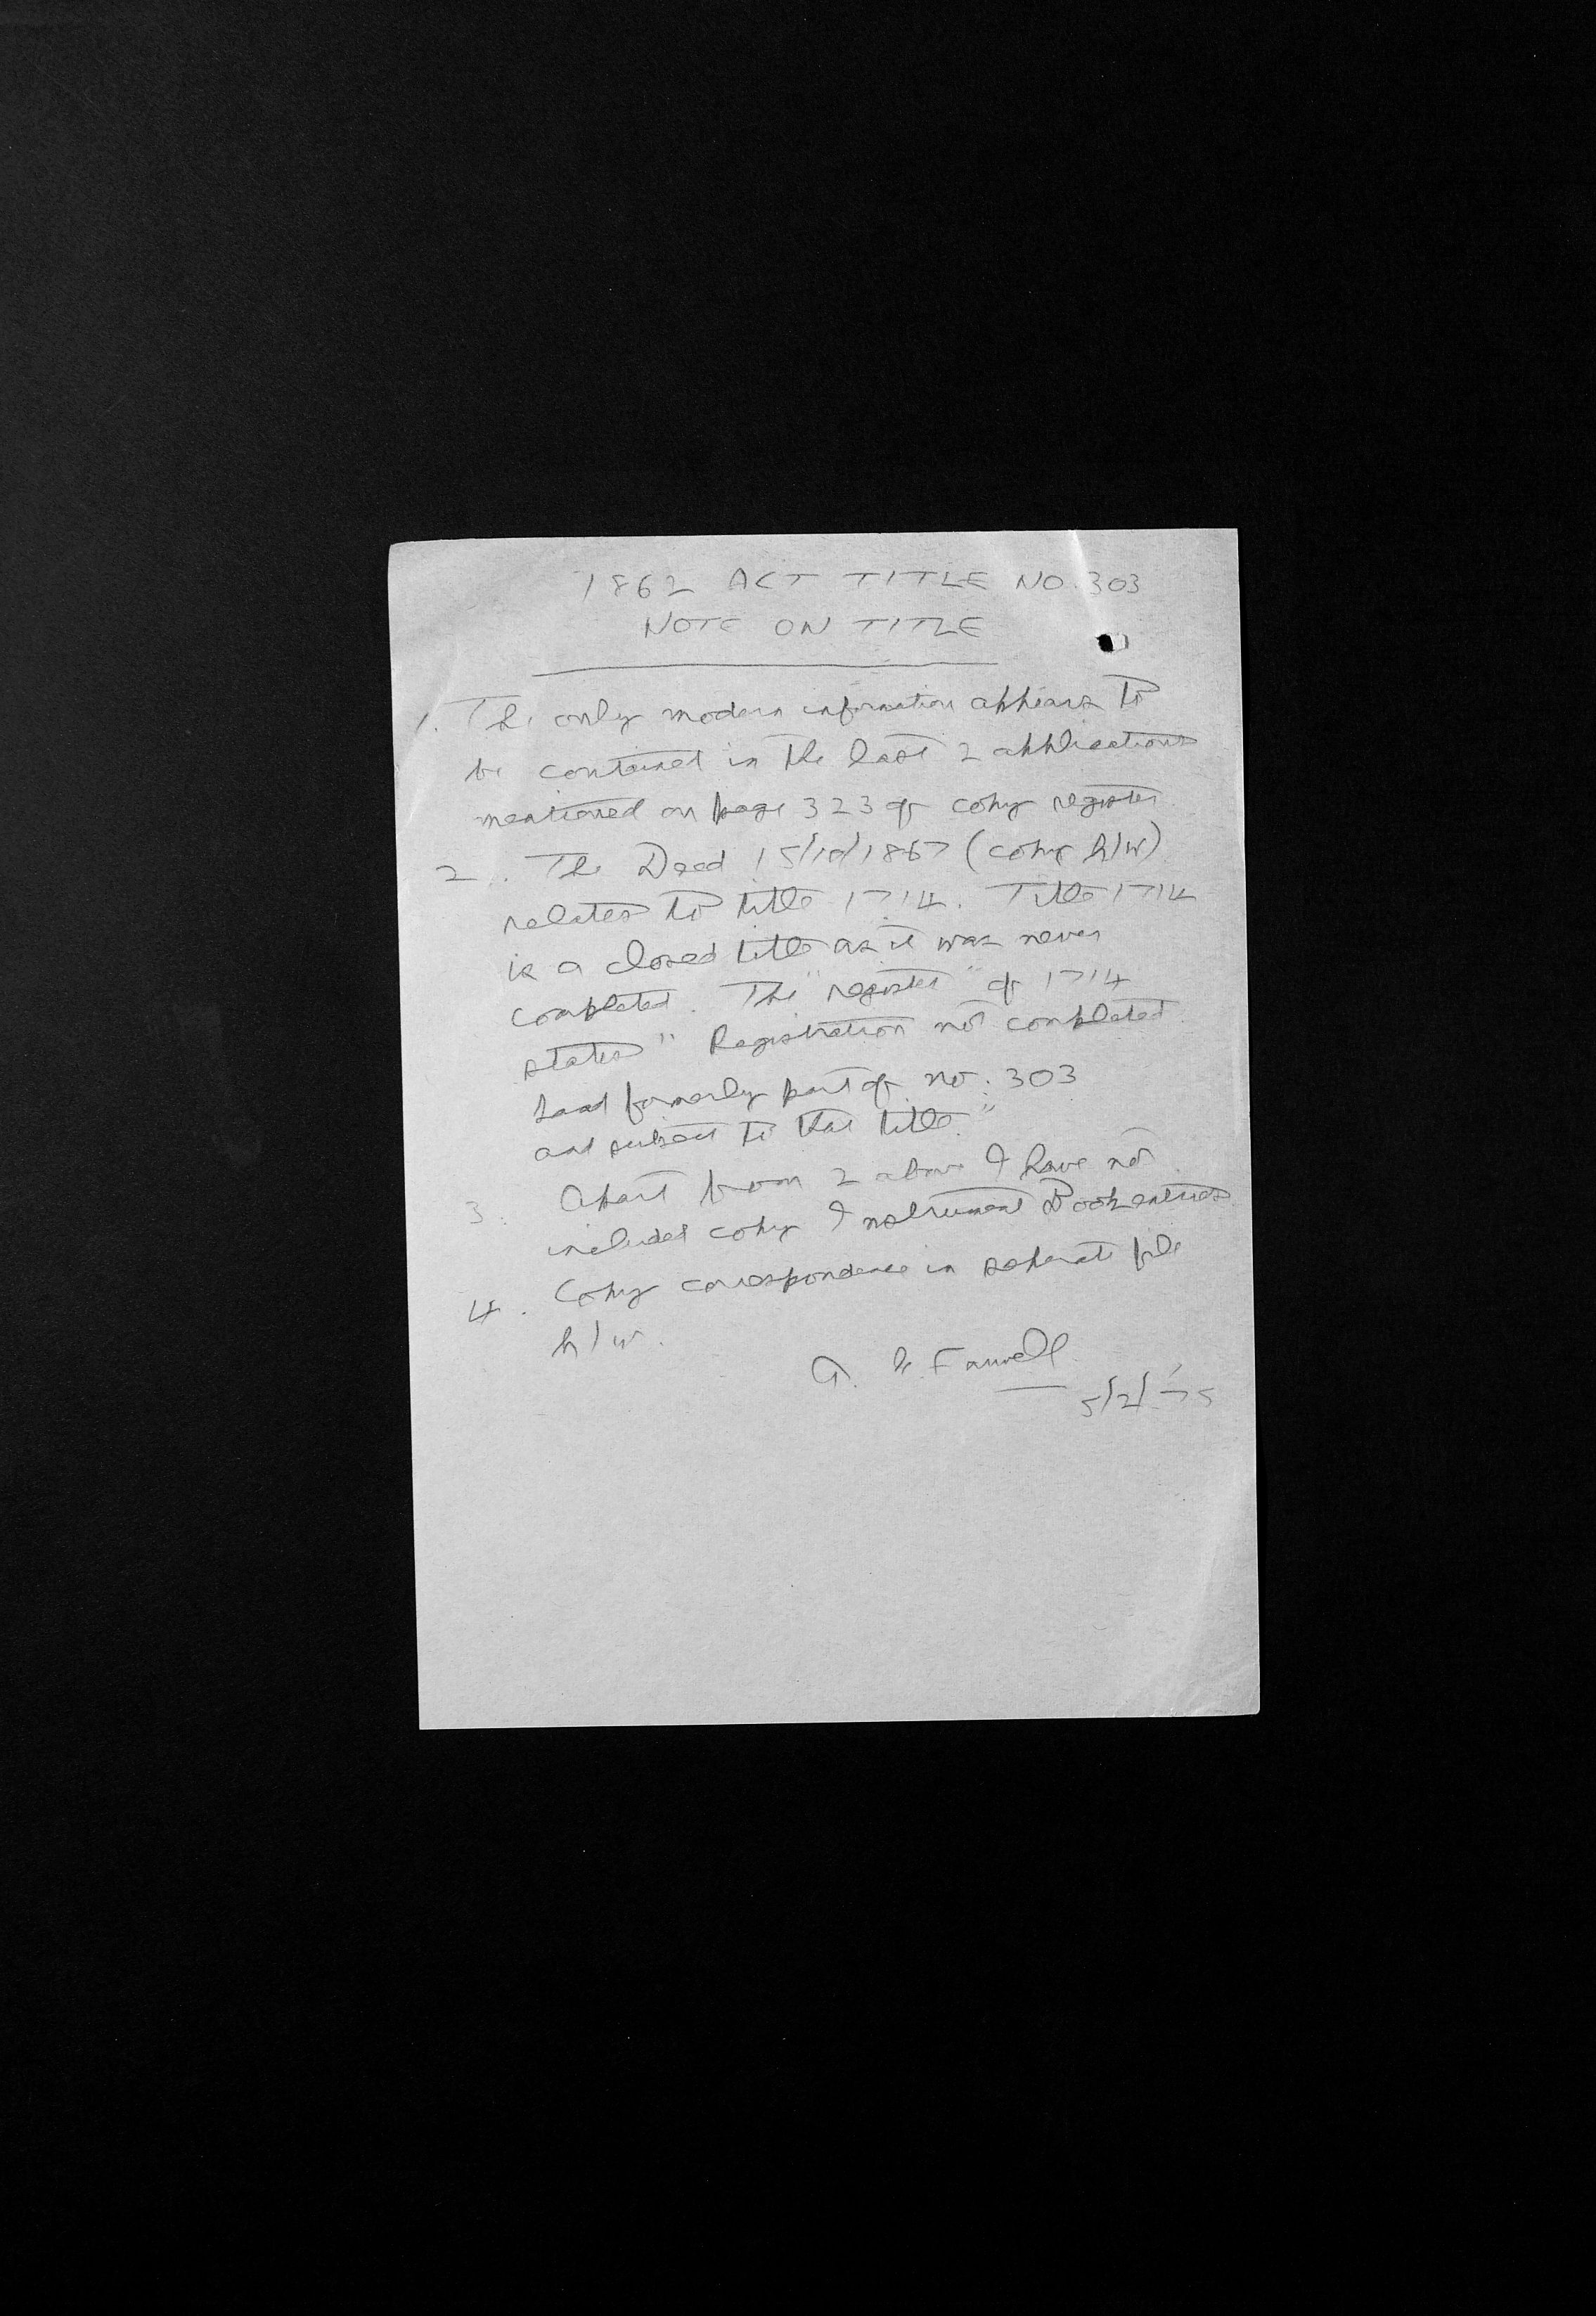 1862 ACT TITLE NO. 303
NOTE ON TITLE
1. The only modern information appears to
be contained in the last 2 applications
mentioned on page 323 of copy register.
2. The Deed 15/10/1867 (copy h/w)
relates to title 1714. Title 1714
is a closed title as it was never
completed. The "register" of 1714
states "Registration not completed.
Land formerly part of no. 303
and subject to that title."
3. Apart from 2 above I have not
included copy Instrument Book entries.
4. Copy correspondence in separate file
h/w.
Farwell
5/2/'75